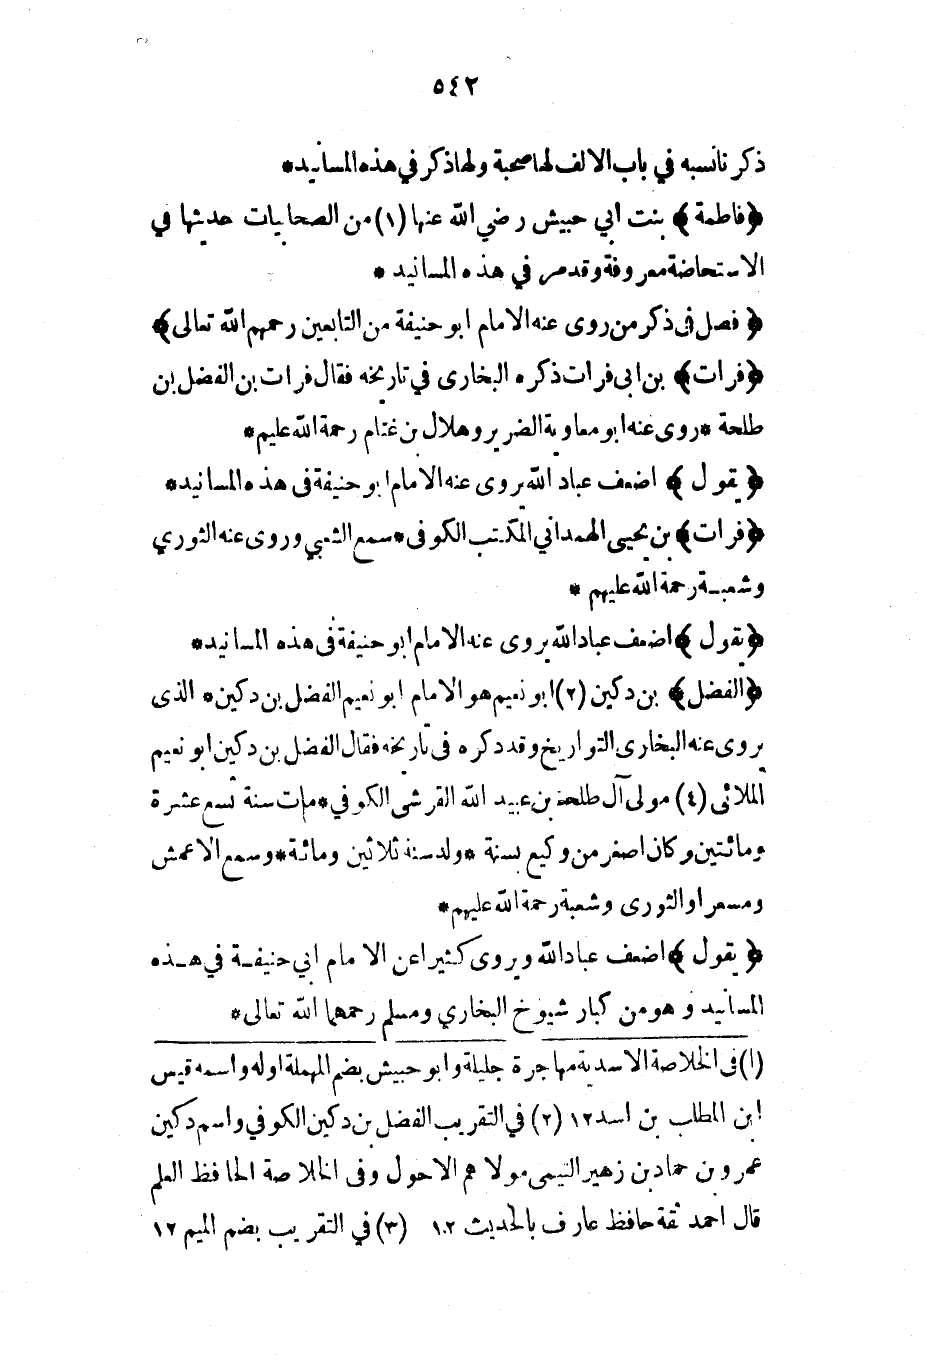 ٥٤٢
ذكرنا نسبه في باب الالف لها صحبة ولها ذكر في هذه المسانيد*
﴿فاطمة﴾ بنت ابي حبيش رضي الله عنها (١) من الصحابيات حديثها في
الاستحاضة معروفة وقد مر في هذه المسانيد *
﴿ فصل فى ذكر من روى عنه الامام ابو حنيفة من التابعين رحمهم الله تعالى﴾
﴿فرات﴾ بن ابى فرات ذكره البخارى في تاريخه فقال فرات بن الفضل بن
طلحة *روى عنه ابو معاوية الضرير وهلال بن غنام رحمة الله عليهم*
﴿يقول ﴾ اضعف عباد الله يروى عنه الامام ابو حنيفة فى هذه المسانيد*
﴿فرات﴾ بن يحيى الهمداني المكتب الكوفى *سمع الشعبي وروى عنه الثوري
وشعبة رحمة الله عليهم *
﴿يقول ﴾ اضعف عباد الله يروى عنه الامام ابو حنيفة فى هذه المسانيد*
﴿الفضل﴾ بن دكين (٢) ابو نعيم هو الامام ابو نعيم الفضل بن دكين* الذى
يروى عنه البخارى التواريخ وقد دكره فى تاريخه فقال الفضل بن دكين ابو نعيم
الملائى (٤) مولى آل طلحة بن عبيد الله القرشى الكوفي *مات سنة تسع عشرة
ومائتين وكان اصغر من وكيع بسنة *ولد سنة ثلاثين ومائة *وسمع الاعمش
ومسعرا والثورى وشعبة رحمة الله عليهم*
﴿يقول ﴾ اضعف عباد الله ويروى كثيرا عن الامام ابي حنيفة في هذه
المسانيد وهو من كبار شيوخ البخاري ومسلم رحمهما الله تعالى*
(١) فى الخلاصة الاسدية مهاجرة جليلة وابو حبيش بضم المهملة اوله واسمه قيس
ابن المطلب بن اسد ١٢ (٢) في التقريب الفضل بن دكين الكوفي واسم دكين
عمرو بن حماد بن زهير التيمى مولاهم الاحول وفى الخلاصة الحافظ العلم
قال احمد ثقة حافظ عارف بالحديث ١٢ (٣) في التقريب بضم الميم ١٢